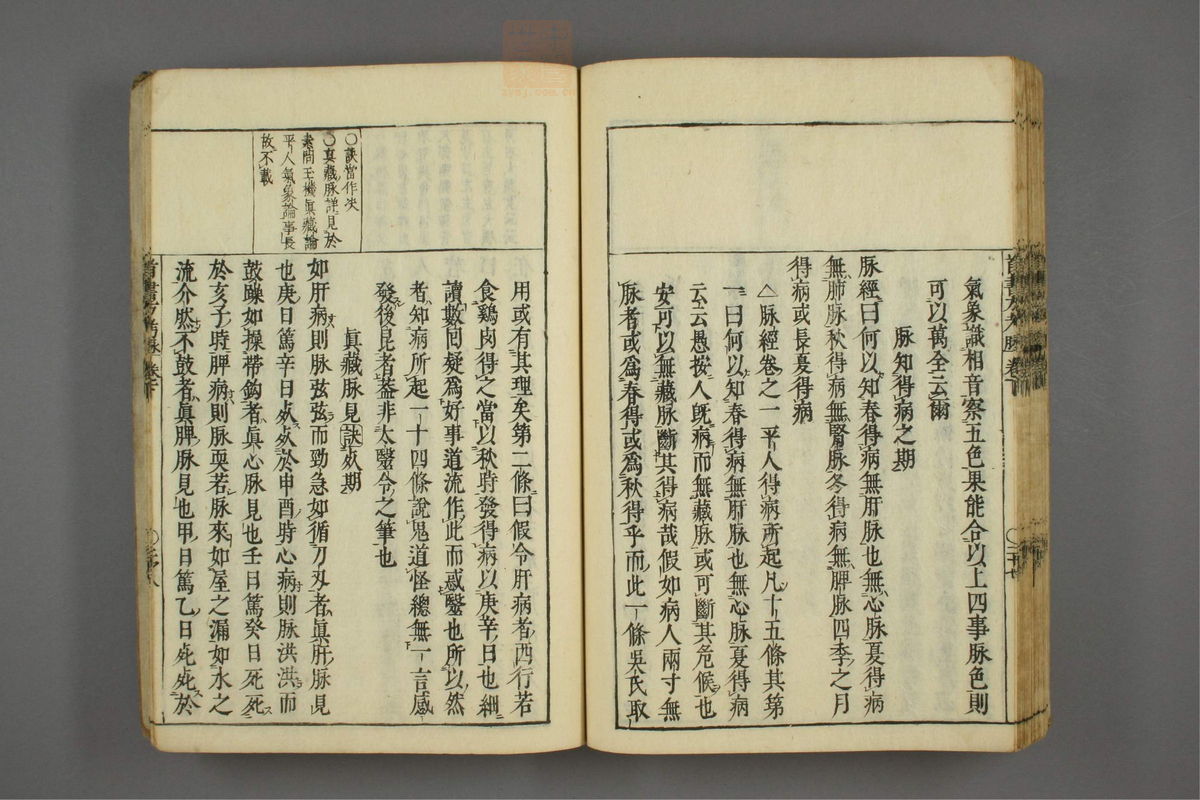 氣象識相音察五色果能合以上四事脉色則
可以萬全云爾
脉知得病之期
脉經曰何以知春得病無肝脉也無心脉夏得病
無肺脉秋得病無腎脉冬得病無脾脉四季之月
得病或長夏得病
△脉經卷之一平人得病所起凡十五條其第
一曰何以知春得病無肝脉也無心脉夏得病
云云愚按人旣病而無藏脉或可斷其危候也
安可以無藏脉斷其得病哉假如病人兩寸無
脉者或爲春得或爲秋得乎而此一條吳氏取
用或有其理矣第二條曰假令肝病者西行若
食鷄肉得之當以秋時發得病以庚辛日也細
讀數囘疑爲好事道流作此而惑醫也所以然
者知病所起一十四條說鬼道怪總無一言感
發後昆者蓋非太醫令之筆也
眞藏脉見訣死期
如肝病則脉弦弦而勁急如循刀刄者眞肝脉見
也庚日篤辛日死死於申酉時心病則脉洪洪而
鼓躁如操帶鈎者眞心脉見也壬日篤癸日死死
於亥子時脾病則脉耎若脉來如屋之漏如水之
流介然不鼓者眞脾脉見也甲日篤乙日死死於
○訣當作决
○眞藏脉詳見於
素問玉機眞藏論
平人氣象論事長
故不載
zysj.com.cn